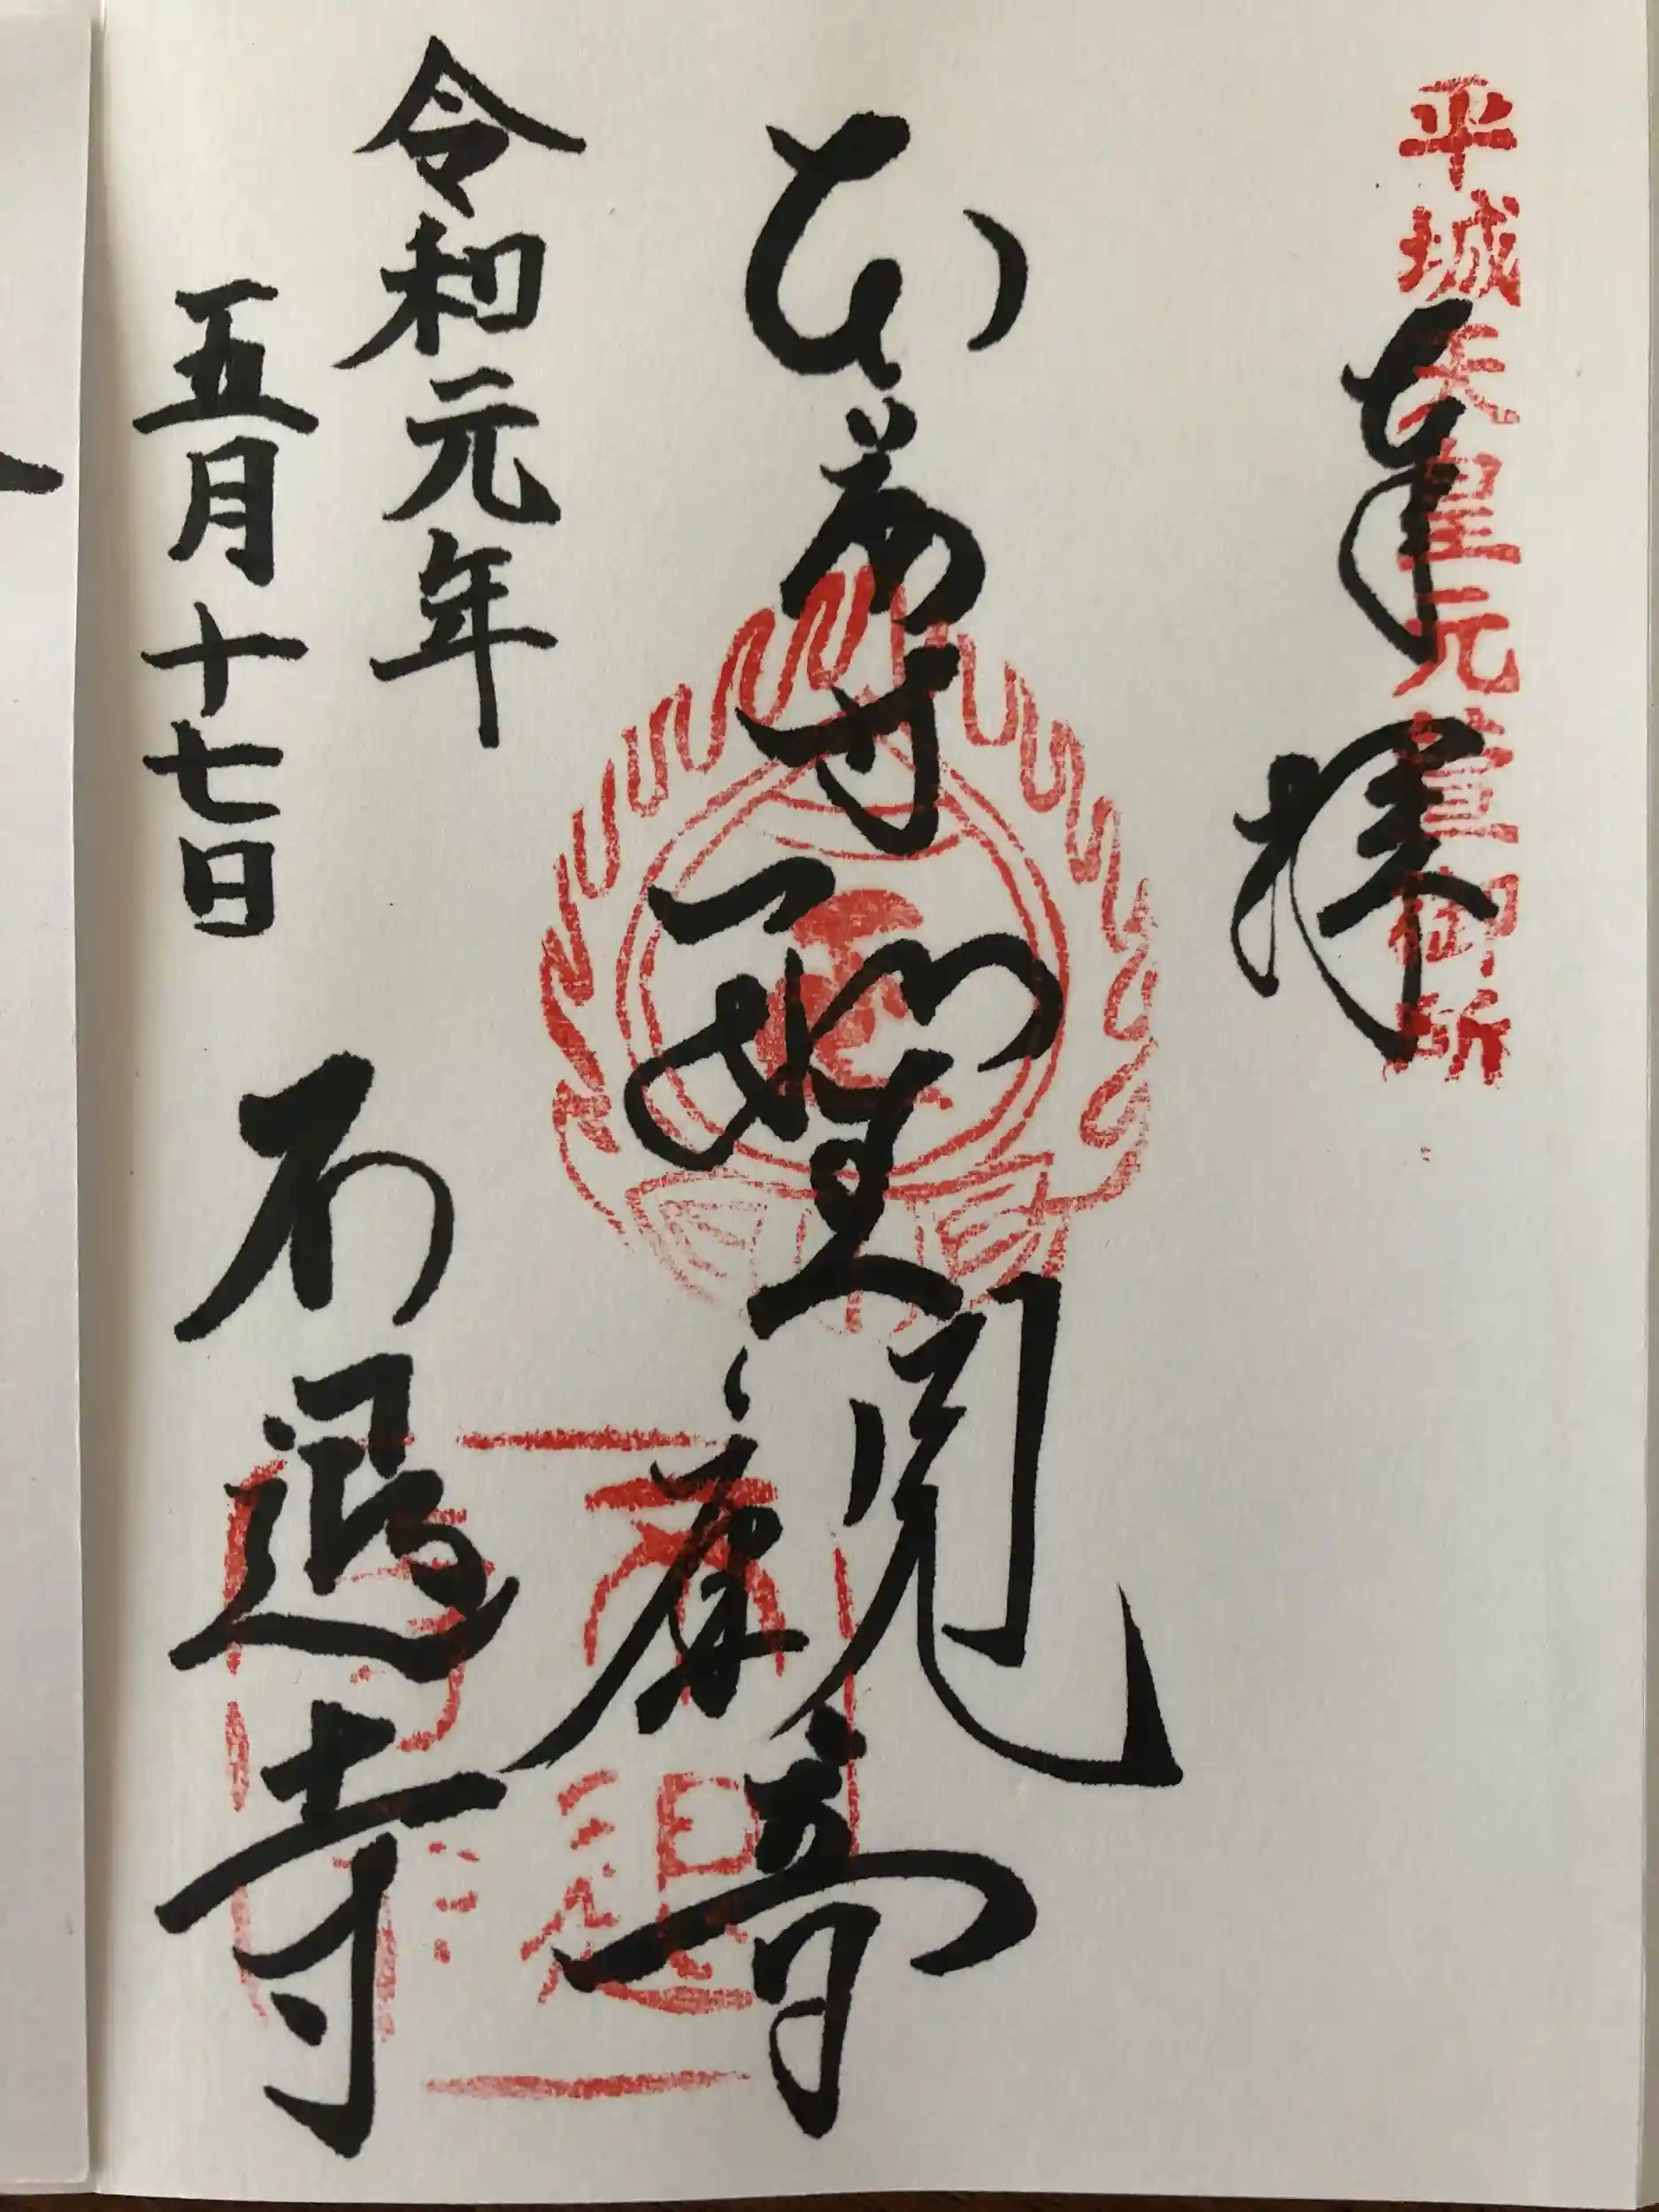 平城天皇元萱御所
奉拝
本尊聖観世音
令和元年
五月十七日
不退寺